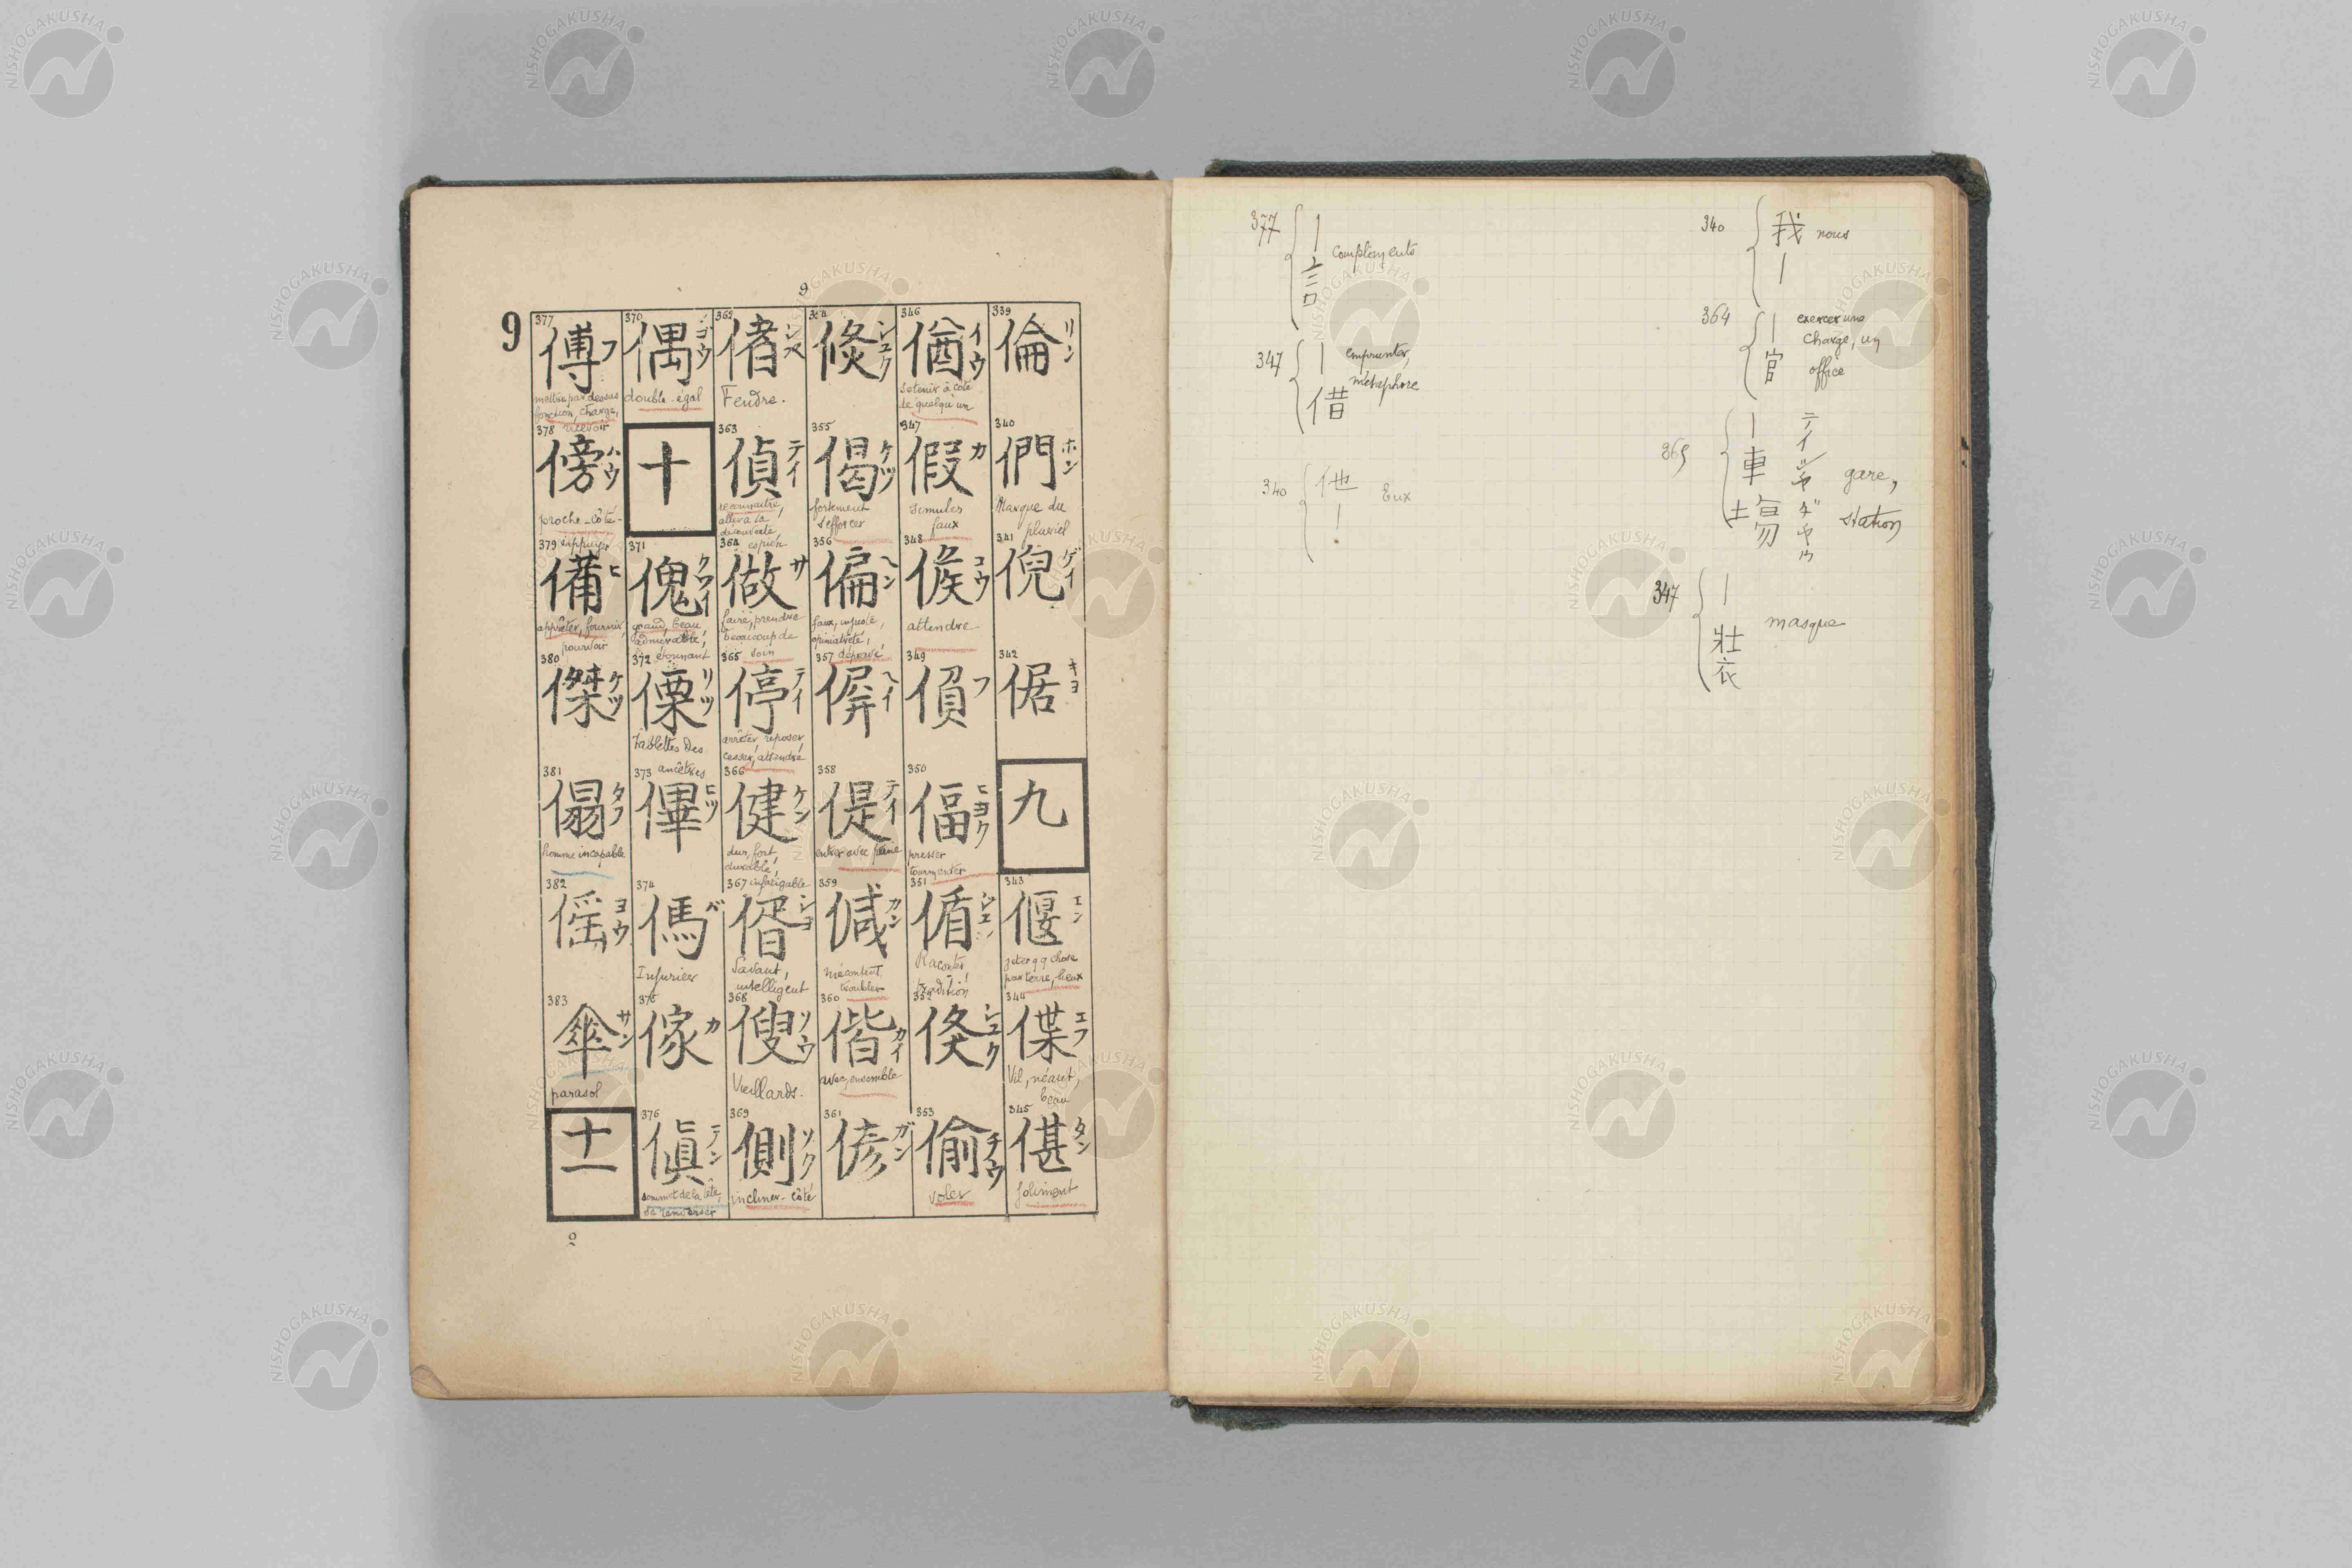 9
9
339
倫
リン
340
們
ホン
Marque du
pluriel
341
倪
ゲイ
342
倨
キヨ
九
343
偃
エン
jeter qq chose
par terre, heux
344
偞
エフ
Vil, néant,
beau
345
偡
タン
joliment
346
偤
イウ
se tenir à côté
de quelqu'un
347
假
カ
simuler
faux
348
偨
コウ
attendre
349
偩
フ
350
偪
ヒヨク
presser
tourmenter
351
偱
ジュン
Raconter,
tradition
352
倐
シユク
353
偷
チウ
voler
倐
シュク
355
偈
ケツ
fortement
s'efforcer
356
偏
ヘン
faux, injuste,
opiniatreté,
dépravé
357
偋
ヘイ
358
偍
テイ
entrer avec peine
359
偳
カン
mécontent,
troubler
360
偕
カイ
avec, ensemble
361
偐
ガン
362
偖
シャ
Fendre.
363
偵
テイ
reconnaître,
aller à la
découverte,
espion
364
做
サ
faire, prendre
beaucoup de
soin
365
停
テイ
arrêter, reposer,
cesser, attendre
366
健
ケン
dur, fort,
durable,
infatigable
367
偦
シヨ
Savant,
intelligent
368
傁
ソウ
Vieillards.
369
側
ソク
incliner - côté
370
偶
ゴウ
double - égal
十
371
傀
クワイ
grand, beau,
admirable,
étonnant
372
傈
リツ
Tablettes des
ancêtres
373
㑻
ヒツ
374
傌
バ
Injurier
375
傢
カ
376
傎
テン
sommet de la tête,
se renverser
377
傅
フ
mettre par dessus
fonction, charge,
recevoir
378
傍
ハウ
proche - côté -
s'appuyer
379
備
ヒ
apprêter, fournir,
pourvoir
380
傑
ケツ
381
傝
タフ
homme incapable
382
傜
ヨウ
383
傘
サン
parasol
十一
9
340
我
｜
nous
364
｜
官
exercer une
charge, un
office
365
｜
車
場
テイシヤヂヤウ
gare,
station
347
｜
壯
衣
masque
377
｜
言
compliments
347
｜
借
emprunter,
métaphore
340
他
｜
Eux
NISHOGAKUSHA